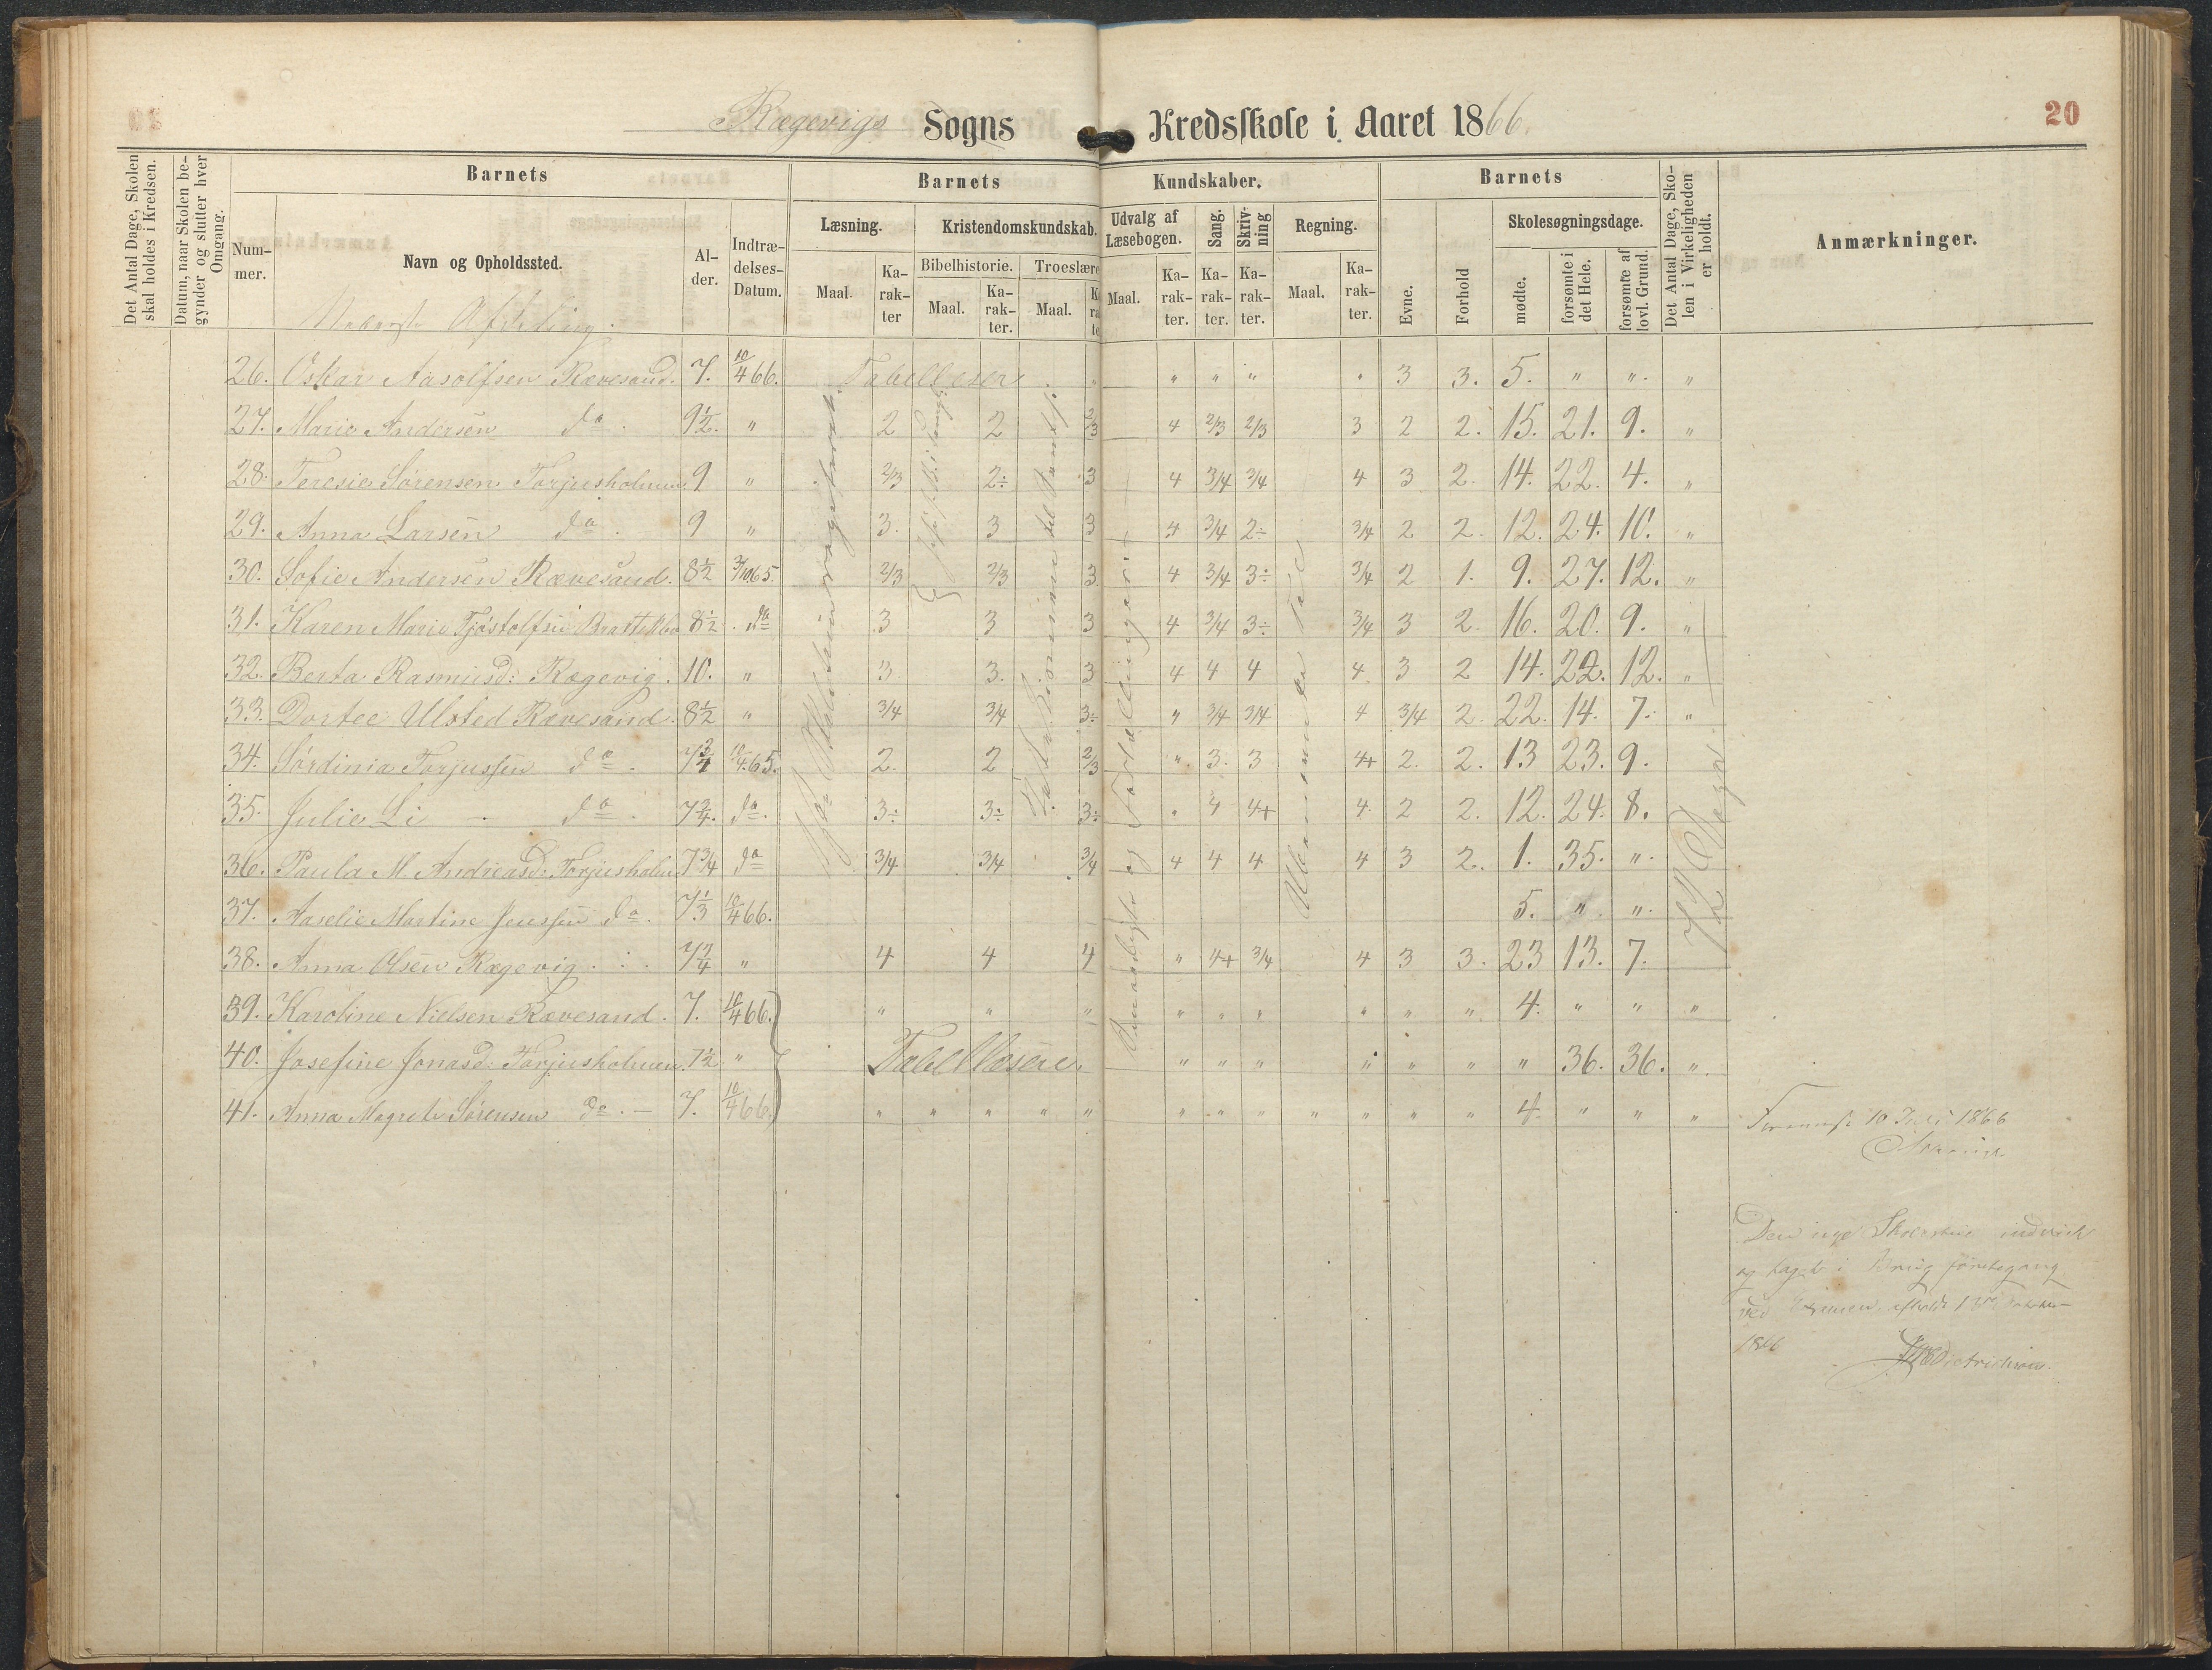 20
Rægevigs Sogns Kredsskole i Aaret 1866.
Det Antal Dage, Skolen skal holdes i Kredsen.
Datum, naar Skolen begynder og slutter hver Omgang.
Barnets
Barnets Kundskaber.
Barnets
Det Antal Dage, Skolen i Virkeligheden er holdt.
Anmærkninger.
Nummer.
Navn og Opholdssted.
Alder.
Indtrædelses-Datum.
Læsning.
Kristendomskundskab.
Udvalg af Læsebogen.
Sang.
Skrivning
Regning.
Skolesøgningsdage.
Bibelhistorie.
Troeslære
Maal.
Karakter
Maal.
Karakter.
Maal.
Maal.
Karakter.
Karakter.
Karakter.
Maal.
Karakter.
Evne.
Forhold
mødte.
forsømte i det Hele.
forsømte af lovl. Grund.
Afdeling.
26. Oskar Aasolfsen Rævesand. 7. 10/4 66. Tabelleser " " " " " 3 3. 5. " " "
27. Marie Andersen do. 9½. " 2 2 2/3 4 2/3 2/3 3 2 2. 15. 21. 9. "
28. Teresie Sørensen Torjusholmen 9 " 2/3 2÷ 3 4 3/4 3/4 4 3 2. 14. 22. 4. "
29. Anna Larsen do. 9 " 3. 3 3 4 3/4 2÷ 3/4 2 2. 12. 24. 10. "
30. Sofie Andersen Rævesand. 8½ 3/10 65. 2/3 2/3 3. 4 3/4 3÷ 3/4 2 1. 9. 27. 12. "
31. Karen Marie Tjøstolfsen 8½ do 3 3 3 4 3/4 3÷ 3/4 3 2. 16. 20. 9. "
32. Berta Rasmusd: Rægevig. 10. " 3. 3. 3 4 4 4 4. 3 2 14. 22. 12. "
33. Dortee Ulsted Rævesand. 8½ " 3/4 3/4 3÷ " 3/4 3/4 4 3/4 2. 22. 14. 7. "
34. Sørdinia Torjussen do. 7¾ 10/4 65. 2. 2 2/3 " 3. 3 4+ 2. 2. 13 23. 9.
35. Julie Li do. 7¾. do. 3÷ 3÷ 3÷ " 4 4+ 4. 2 2. 12. 24. 8.
36. Paula M. Andreasd: Torjusholm 7¾ do 3/4 3/4 3/4 4 4 4 4 3 2. 1. 35. "
37. Aaselie Martine Jenssen do. 7⅓ 10/4 66. 5. " "
38. Anna Olsen Rægevig. 7¾ " 4 4 4 " 4+ 3/4 4 3 3. 23 13. 7.
39. Karoline Nielsen Rævesand. 7. 10/4 66. " " " " " " " " " 4. " " "
40. Josefine Jonasd: Torjusholmen. 7½ " Tabellæsere. " " " " " " " 36. 36. "
41. Anna Magrete Sørensen do. 7. 10/4 66. " " " " " " " " " " " " 4. " " "
72 Dage
10 Juli 1866
Den nye
og taget i Brug førstegang
ved Examen
1866